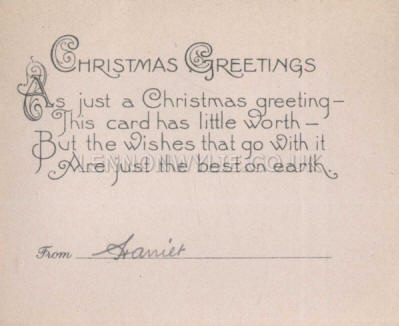 CHRISTMAS GREETINGS
As just a Christmas greeting—
This card has little worth—
But the wishes that go with it
Are just the best on earth.
LENNONWYLIE.CO.UK
From Harriet